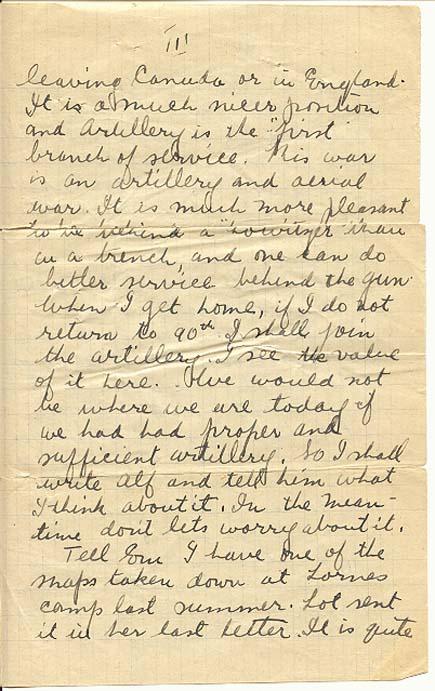 III
leaving Canada or in England.
It is a much nicer position
and Artillery is the "first"
branch of service. This war
is an artillery and aerial
war. It is much more pleasant
to be behind a "howitzer" than
in a trench, and one can do
better service behind the gun.
When I get home, if I do not
return to 90th I shall join
the artillery. I see the value
of it here. We would not
be where we are today if
we had had proper and
sufficient artillery. So I shall
write Alf and tell him what
I think about it. In the mean-
time dont lets worry about it.
Tell Em I have one of the
snaps taken down at Lornes
camp last summer. Lot sent
it in her last letter. It is quite